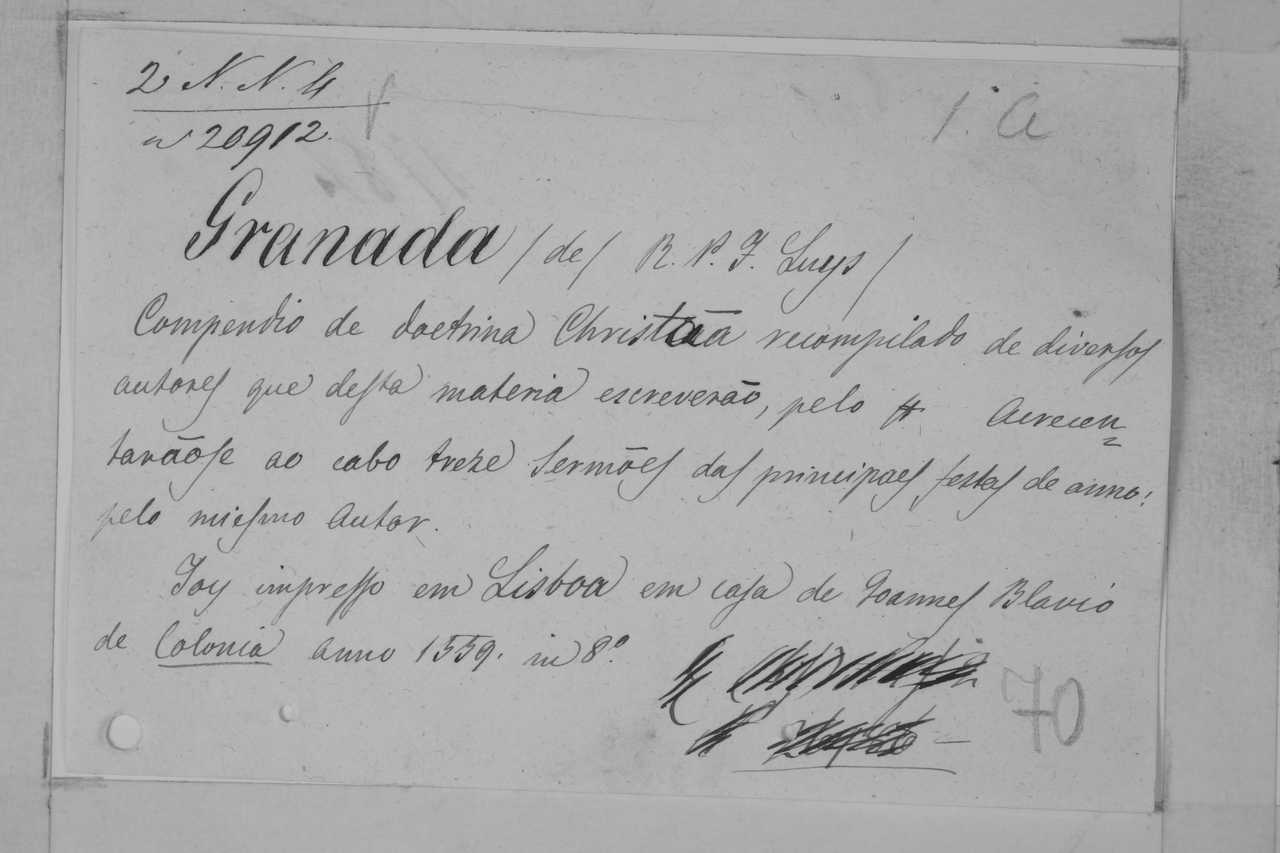 2 N. N. 4
n 20912.
1. a
Granada / de / R. P. F. Luys /
Compendio de doctrina Christãa recompilado de diversos
autores que desta materia escreverão, pelo Acrecen=
tarãose ao cabo treze Sermões das principaes festas de anno:
pelo miesmo Autor.
Foy impresso em Lisboa em casa de Joannes Blavio
de Colonia anno 1559. in 8º.
70